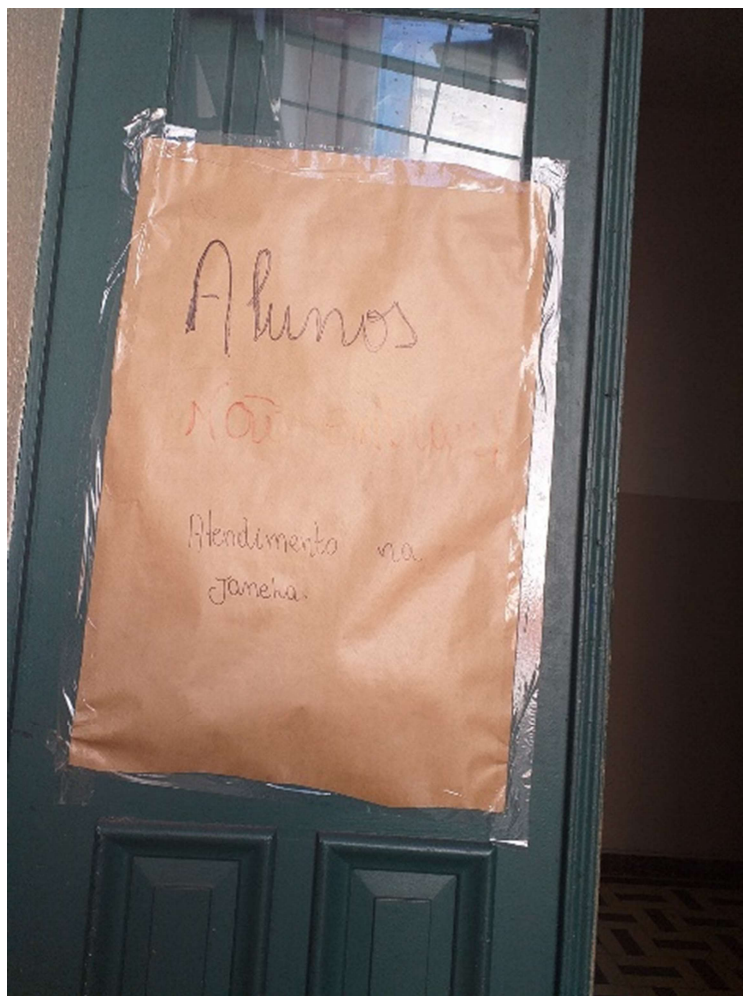 Alunos
NÃO
Atendimento na
Janela.